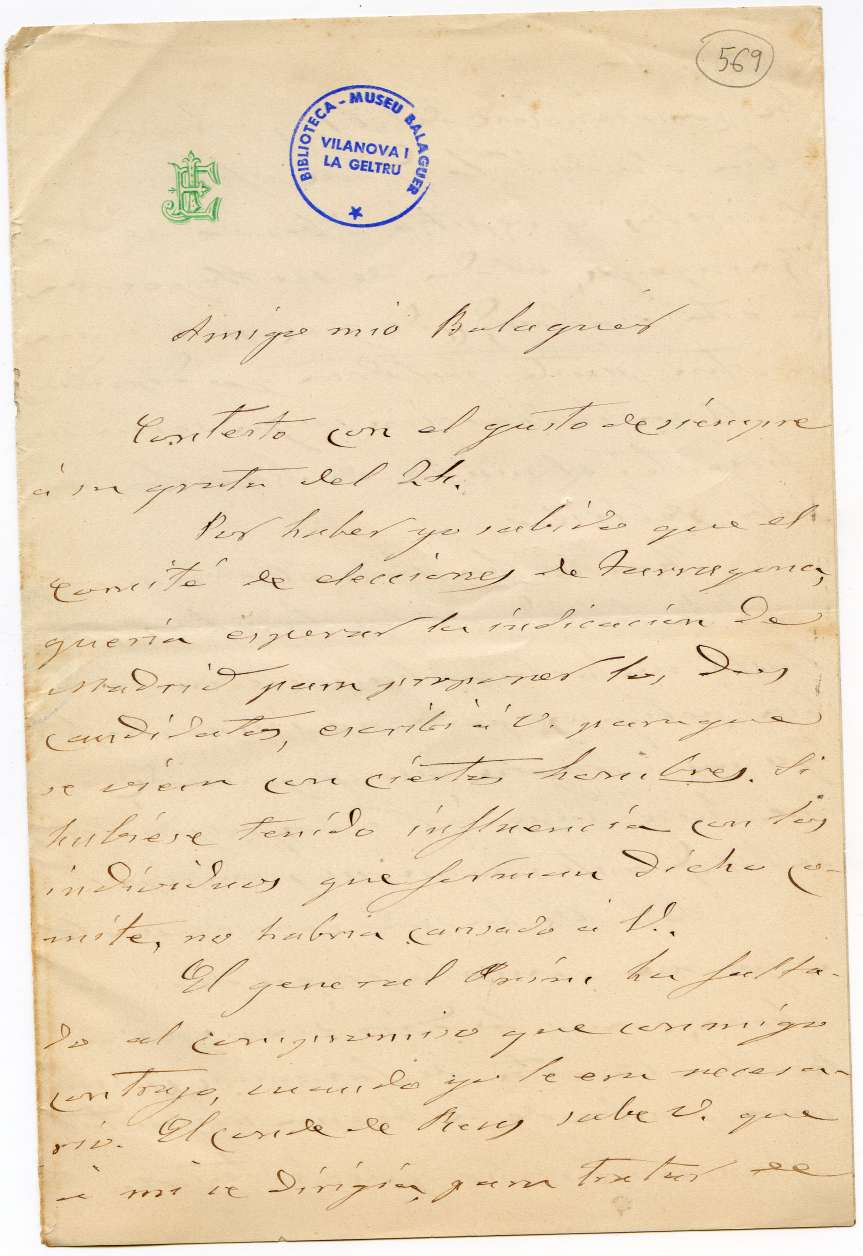 569
BIBLIOTECA - MUSEU BALAGUER
VILANOVA I
LA GELTRU
Amigo mio Balaguér
Contesto con el gusto de siempre
á su grata del 24.
Por haber yo sabido que el
comité de elecciones de Tarragona,
queria esperar la indicacion de
Madrid para proponer los dos
candidatos, escribi á V. para que
se viera con ciertos hombres. Si
hubiese tenido influencia con los
individuos que forman dicho co-
mite, no habria cansado á V.
El general Prim ha falta-
do al compromiso que conmigo
contrajo, cuando yo le era necesa-
rio. El conde de Reus sabe V. que
á mi se dirigia, para tratar de